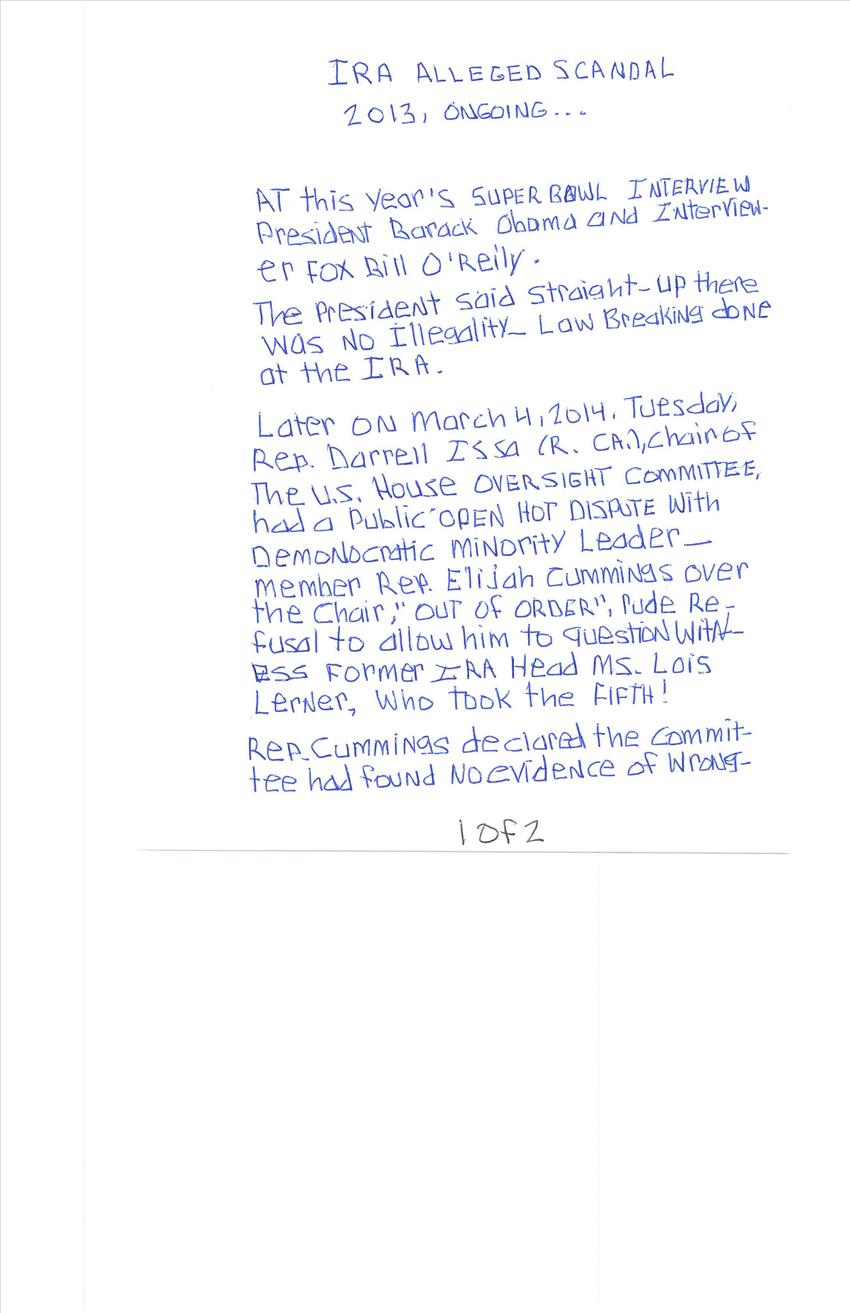 IRA ALLEGED SCANDAL
2013, ONGOING...
AT this year's SUPER BOWL INTERVIEW
President Barack Obama and Interview-
er FOX Bill O'Reily.
The President said straight-up there
was NO Illegality_ Law Breaking done
at the IRA.
Later ON March 4, 2014, Tuesday,
Rep. Darrell Issa (R. CA.), chair of
The U.S. House OVERSIGHT COMMITTEE,
had a Public "OPEN HOT DISPUTE With
DEMONOcratic MINORITY Leader_
member Rep. Elijah Cummings over
the Chair," OUT OF ORDER", Pude Re-
fusal to allow him to question WITN-
ESS Former IRA Head Ms. Lois
Lerner, Who took the FIFTH!
Rep. Cummings declared the Commit-
tee had found No evidence of Wrong-
1 of 2